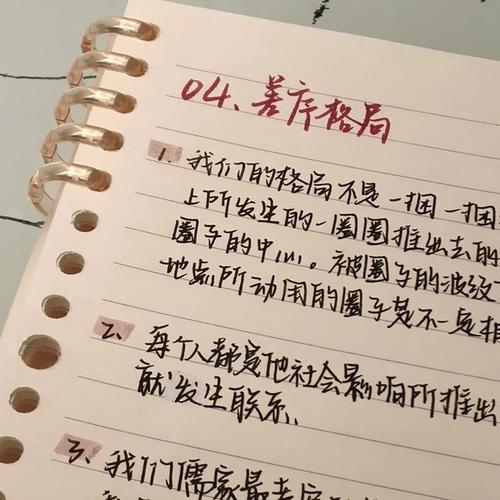 04、差序格局
1. 我们的格局不是一捆一捆
上所发生的一圈圈推出去的
圈子的中心。被圈子的波纹
地点所动用的圈子是不一定相
2、每个人都是他社会影响所推出
就发生联系.
3、我们儒家最考